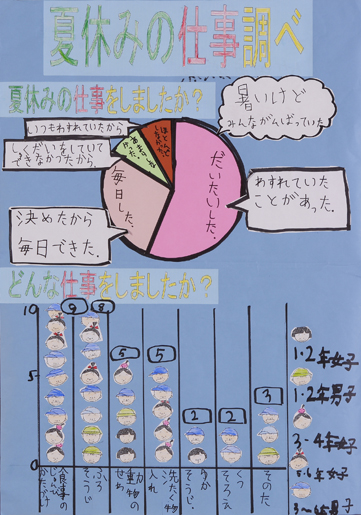 夏休みの仕事調べ
夏休みの仕事をしましたか？
暑いけど
みんながんばっていた
いつもわすれていたから
しゅくだいをしていて
できなかったから。
だいたいした。
毎日した。
わすれていた
ことがあった。
決めたから
毎日できた。
どんな仕事をしましたか？
10
5
0
9
8
5
5
2
2
3
食事の
じゅんび
かたづけ
ふろ
そうじ
動物の
せわ
洗たく物
入れ
ゆか
そうじ
くつ
そろえ
そのた
1・2年女子
1・2年男子
3〜4年女子
5〜6年男子